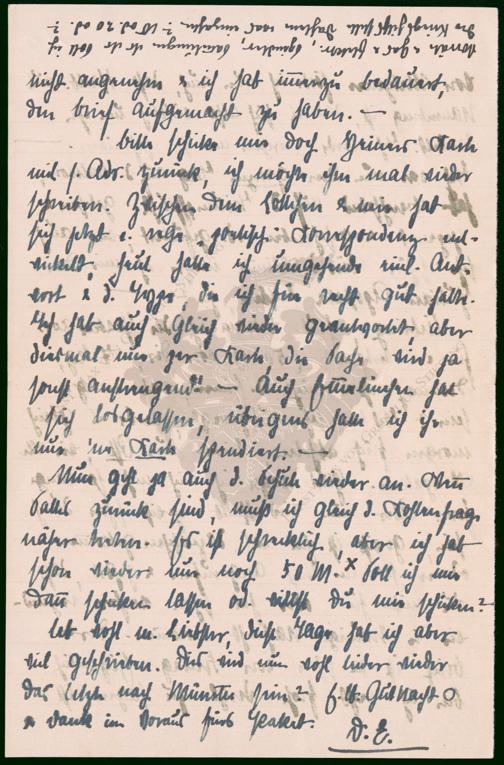 nicht angenehm & ich hab immerzu bedauert,
den brief aufgemacht zu haben. —
bitte schicke mir doch Heiners Karte
mit s. Adr. zurück, ich möchte ihm mal wieder
schreiben. Zwischen dem Lottchen & mir hat
sich jetzt e. rege „poetische" Korrespondenz ent-
wickelt, heut hatte ich umgehende Ant-
vort & d. die ich für recht gut halte.
Ich hab auch gleich wieder geantwortet, aber
diesmal nur per Karte, die Sache wird ja
sonst anstrengend!! — Auch hat
sich losgelassen, übrigens hatte ich ihr
nur 'ne Karte spendiert. —
Nun geht ja auch d. Schule wieder an. Wenn
zurück sind, muß ich gleich d. Kohlenfrage
näher treten. Es ist schrecklich, aber ich hab
schon wieder nur noch 50 M. x Soll ich mir
dann schicken lassen od. willst Du mir schicken?
Leb wohl m. Liebster, diese Tage hab ich aber
viel geschrieben. Dies wird nun wohl leider wieder
das letzte nach Münster sein? Gut Nacht
& Dank im Voraus fürs Paket.
D. E.
x